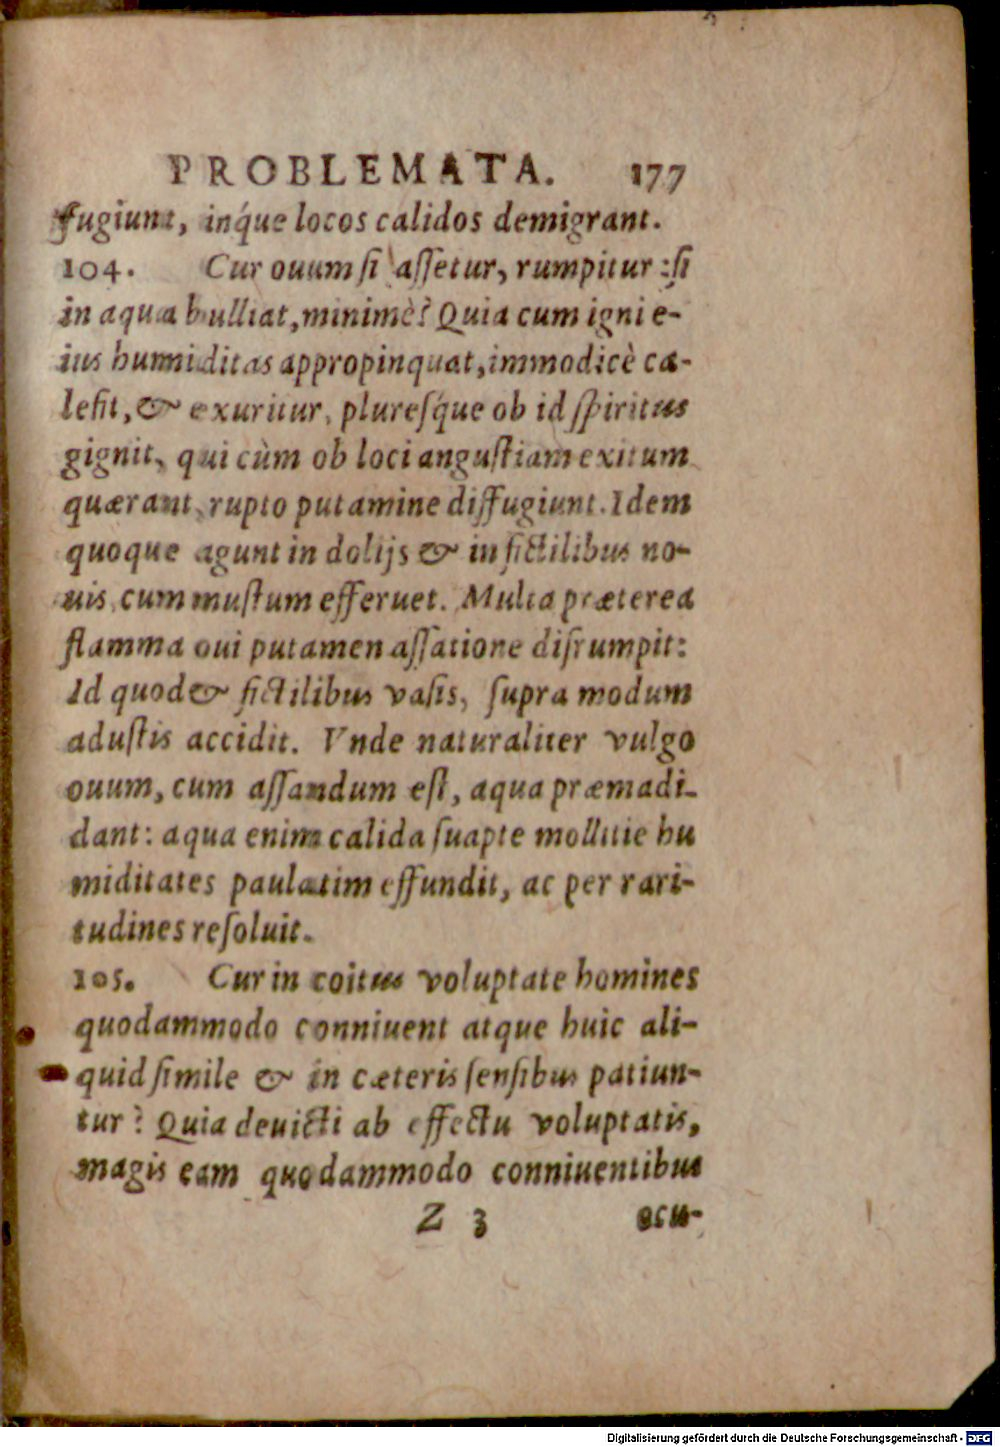 PROBLEMATA. 177
fugiunt, inq́ue locos calidos demigrant.
104. Cur ouum si assetur, rumpitur: si
in aqua bulliat, minimè? Quia cum igni e-
ius humiditas appropinquat, immodicè ca-
lefit, & exuritur, pluresq́ue ob id spiritus
gignit, qui cùm ob loci angustiam exitum
quærant, rupto putamine diffugiunt. Idem
quoque agunt in dolijs & in fictilibus no-
uis, cum mustum efferuet. Multa præterea
flamma oui putamen assatione disrumpit:
Id quod & fictilibus vasis, supra modum
adustis accidit. Vnde naturaliter vulgo
ouum, cum assandum est, aqua præmadi-
dant: aqua enim calida suapte mollitie hu
miditates paulatim effundit, ac per rari-
tudines resoluit.
105. Cur in coitus voluptate homines
quodammodo conniuent atque huic ali-
quid simile & in cæteris sensibus patiun-
tur? Quia deuicti ab effectu voluptatis,
magis eam quodammodo conniuentibus
Z 3 ocu-
Digitalisierung gefördert durch die Deutsche Forschungsgemeinschaft - DFG